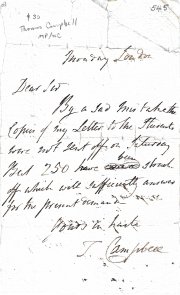 $30
545
Thomas Campbell
MP/NC
Monday London
Dear Sir
By a sad mistake the
Copies of my Letter to the Students
were not sent off on Saturday
But 250 have been struck
off which will sufficiently answer
for the present demand
Yours in haste
T. Campbell